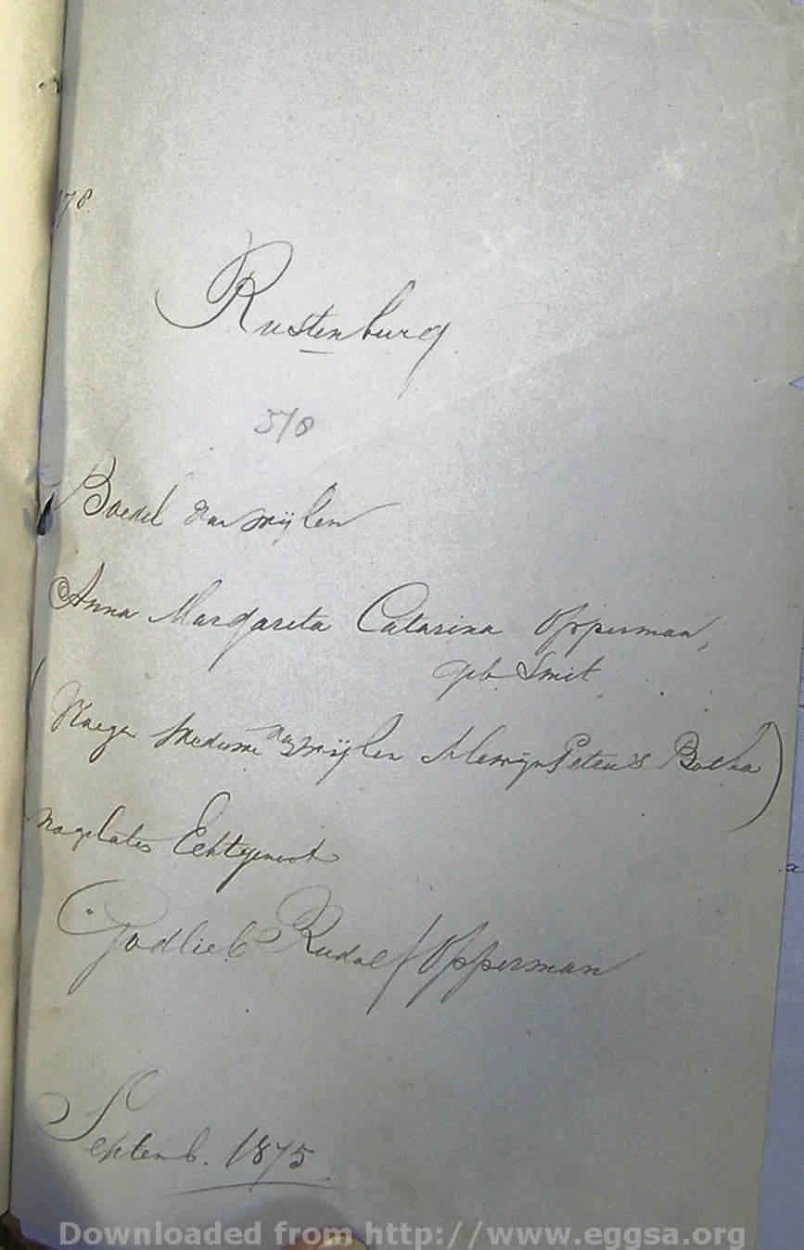 78.
Rustenburg
578
Boedel van wijlen
Anna Margareta Catarina Opperman,
geb Smit
(Vroeger Weduwe van wijlen Petrus Botha)
nagelaten Echtgenoot
Godlieb Rudolf Opperman
Septemb. 1875
Downloaded from http://www.eggsa.org